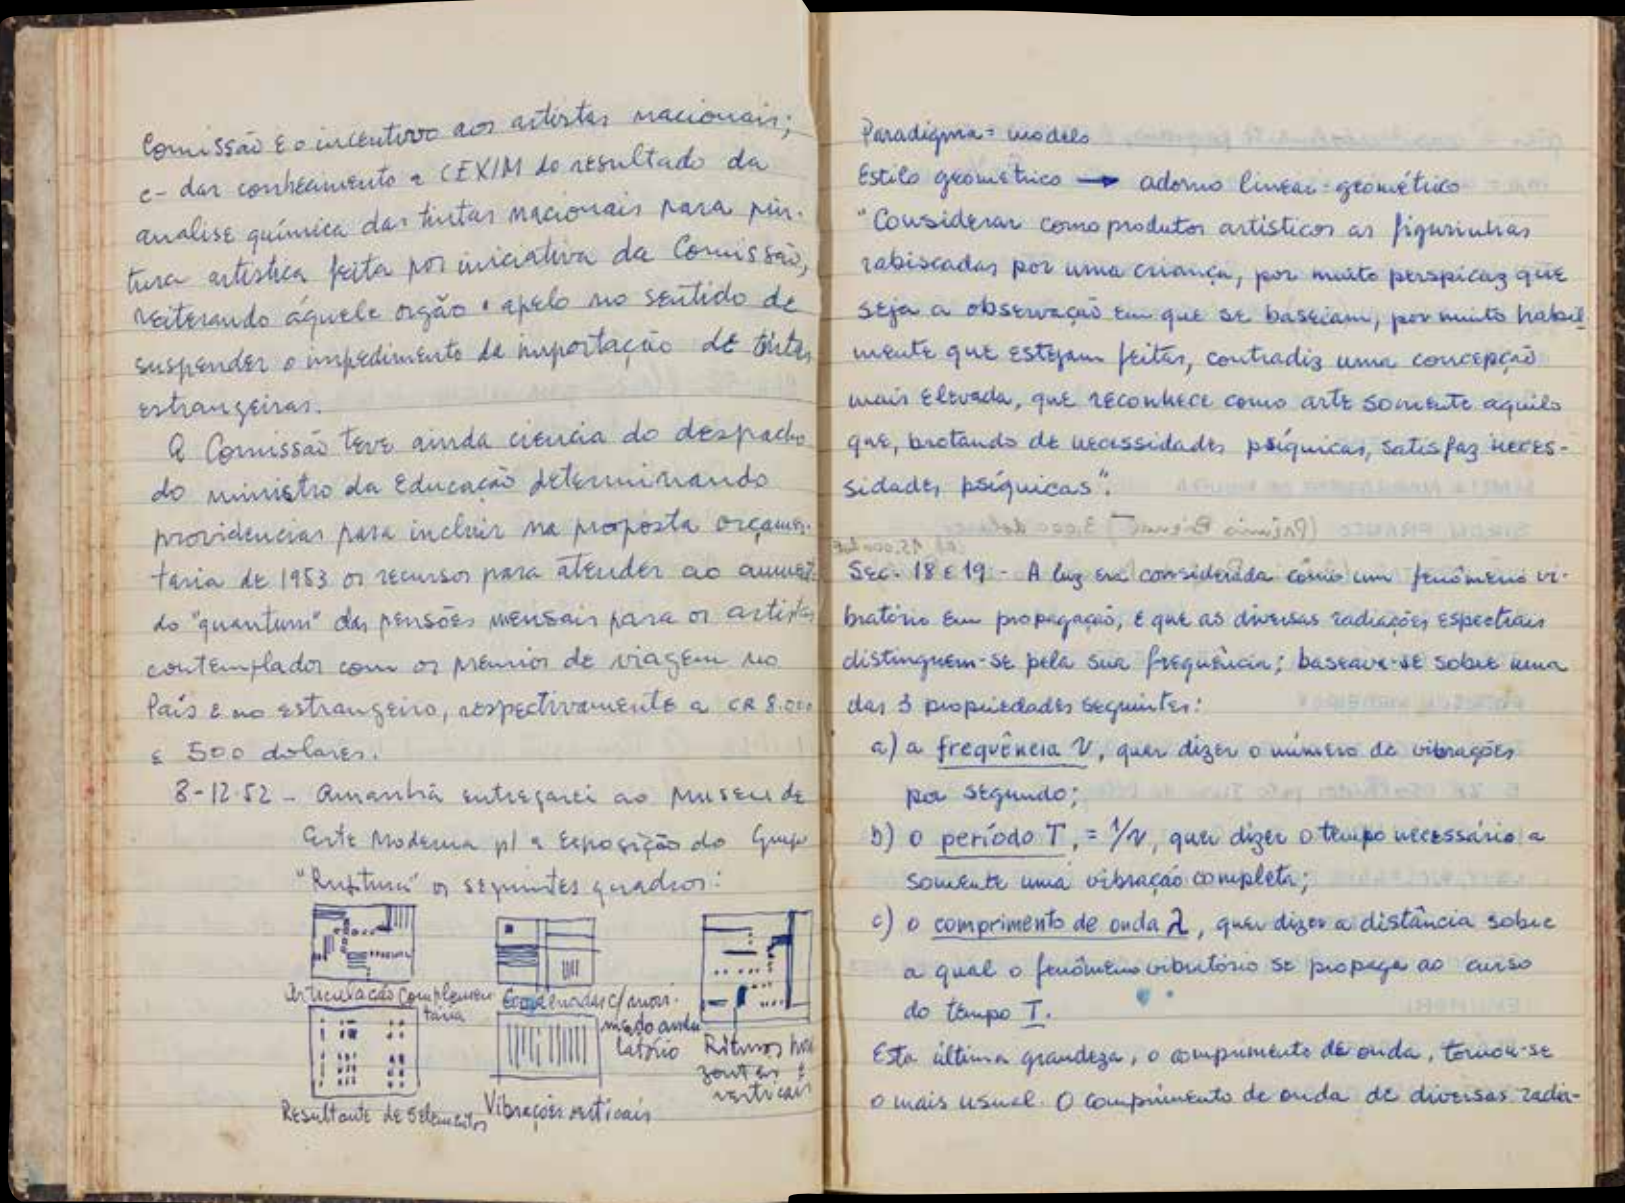 Comissão e o incentivo aos artistas nacionais;
c- dar conhecimento a CEXIM do resultado da
analise química das tintas nacionais para pin-
tura artistica feita por iniciativa da Comissão,
reiterando áquele orgão o apelo no sentido de
suspender o impedimento da importação de tintas
estrangeiras.
A Comissão teve ainda ciencia do despacho
do ministro da Educação determinando
providencias para incluir na proposta orçamen-
taria de 1953 os recursos para atender ao aument.
do "quantum" das pensões mensais para os artistas
contemplados com os premios de viagem no
País e no estrangeiro, respectivamente a CR 8.000
e 500 dolares.
8-12-52 - Amanhã entregarei ao Museu de
Arte Moderna p/ a Exposição do Grupo
"Ruptura" os seguintes quadros:
Articulação Complemen
tária
c/ movi-
mento ondu
latório
Ritmos hori
zontais e
verticais
Resultante de 5 elementos
Vibrações verticais
Paradigma = modelo
Estilo geométrico → adorno linear-geométrico
"Considerar como produtos artísticos as figurinhas
rabiscadas por uma criança, por muito perspicaz que
seja a observação em que se baseiam, por muito habil
mente que estejam feitas, contradiz uma concepção
mais elevada, que reconhece como arte somente aquilo
que, brotando de necessidades psíquicas, satisfaz neces-
sidades psíquicas".
Sec. 18 e 19 - A luz era considerada como um fenômeno vi-
bratório em propagação, e que as diversas radiações espectrais
distinguem-se pela sua frequência; baseava-se sobre uma
das 3 propriedades seguintes:
a) a frequência ν, quer dizer o número de vibrações
por segundo;
b) o período T, = 1/ν, quer dizer o tempo necessário a
somente uma vibração completa;
c) o comprimento de onda λ, quer dizer a distância sobre
a qual o fenômeno vibratório se propaga ao curso
do tempo T.
Esta última grandeza, o comprimento de onda, tornou-se
o mais usual. O comprimento de onda de diversas radia-